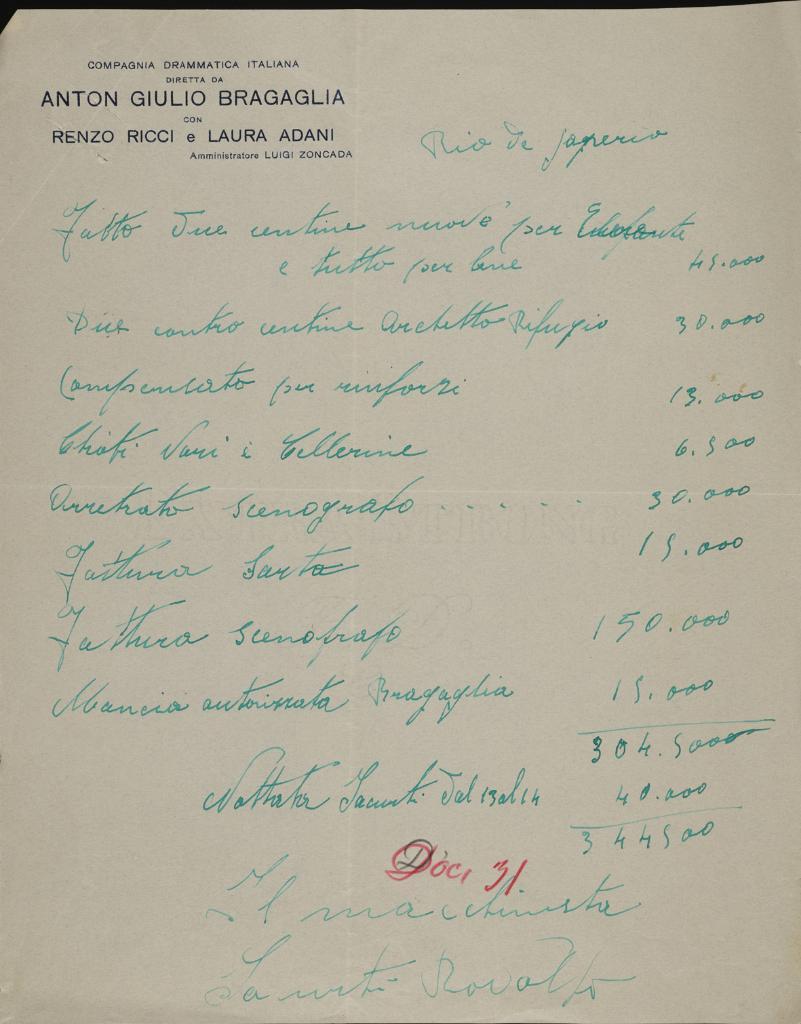 COMPAGNIA DRAMMATICA ITALIANA
DIRETTA DA
ANTON GIULIO BRAGAGLIA
CON
RENZO RICCI e LAURA ADANI
Amministratore LUIGI ZONCADA
Rio de Janerio
Fatto due centine nuove per Elefante
e tutto per bene 45.000
Due contro centine Archetto Rifugio 30.000
Compensato per rinforzi 13.000
Chiodi Vari e Cellerine 6.500
Arretrato Scenografo ...... 30.000
Fattura Sarta 15.000
Fattura Scenografo 150.000
Mancia autorizzata Bragaglia 15.000
304.5000
Nottata dal 13 al 14 40.000
344500
Doc, 31
Il macchinista
Rodolfo